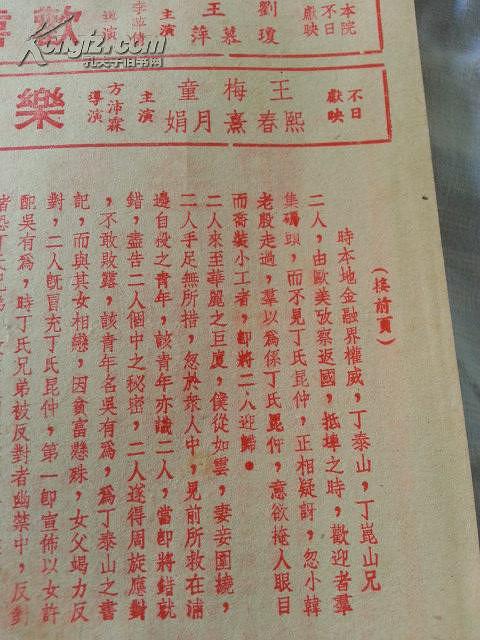 本院
不日
獻映
劉瓊
王慕萍
主演
李萍倩
導演
歡喜
不日
獻映
王熙春
梅熹
童月娟
主演
方沛霖
導演
樂
(接前頁)
時本地金融界權威,丁泰山,丁崑山兄
二人,由歐美攷察返國,抵埠之時,歡迎者羣
集碼頭,而不見丁氏昆仲,正相疑訝,忽小韓
老殷走過,羣以為係丁氏昆仲,意欲掩人眼目
而喬裝小工者,卽將二人迎歸。
二人來至華麗之巨廈,僕從如雲,妻妾圍繞,
二人手足無所措,忽於衆人中,見前所救在浦
邊自投之青年,該青年亦識二人,當卽將錯就
錯,盡告二人個中之秘密,二人遂得周旋應對
,不敢敗露,該青年名吳有為,為丁泰山之書
記,而與其女相戀,因貧富懸殊,女父竭力反
對,二人旣冒充丁氏昆仲,第一卽宣佈以女許
配吳有為,時丁氏兄弟被反對者幽禁中,反對
者恐丁氏兄弟
孔夫子旧书网